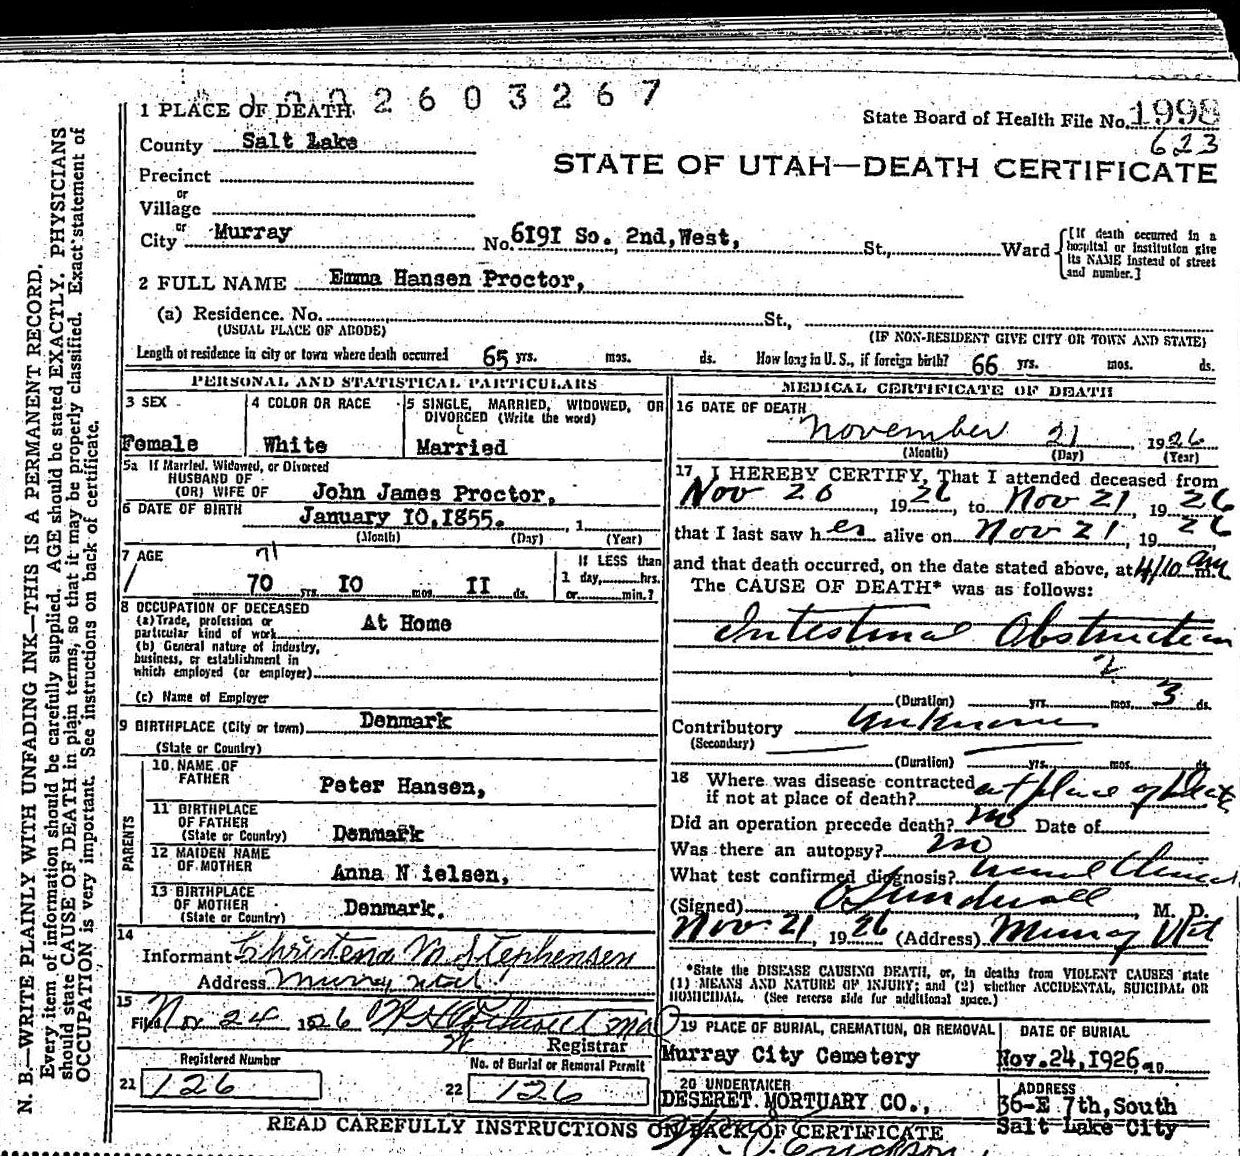 2 6 0 3 2 6 7
1 PLACE OF DEATH
State Board of Health File No. 1998
623
County Salt Lake
STATE OF UTAH—DEATH CERTIFICATE
Precinct
or
Village
or
City Murray No. 6191 So. 2nd, West, St., Ward
[If death occurred in a hospital or institution give its NAME instead of street and number.]
2 FULL NAME Emma Hansen Proctor,
(a) Residence. No. St.,
(USUAL PLACE OF ABODE) (IF NON-RESIDENT GIVE CITY OR TOWN AND STATE)
Length of residence in city or town where death occurred 65 yrs. mos. ds. How long in U. S., if foreign birth? 66 yrs. mos. ds.
PERSONAL AND STATISTICAL PARTICULARS
3 SEX
Female
4 COLOR OR RACE
White
5 SINGLE, MARRIED, WIDOWED, OR
DIVORCED (Write the word)
Married
5a If Married, Widowed, or Divorced
HUSBAND OF
(OR) WIFE OF John James Proctor,
6 DATE OF BIRTH January 10, 1855. , 1
(Month) (Day) (Year)
7 AGE 71
70 yrs. 10 mos. 11 ds.
If LESS than
1 day, hrs.
or min.?
8 OCCUPATION OF DECEASED
(a) Trade, profession or
particular kind of work At Home
(b) General nature of industry,
business, or establishment in
which employed (or employer)
(c) Name of Employer
9 BIRTHPLACE (City or town) Denmark
(State or Country)
PARENTS
10 NAME OF
FATHER Peter Hansen,
11 BIRTHPLACE
OF FATHER
(State or Country) Denmark
12 MAIDEN NAME
OF MOTHER Anna N ielsen,
13 BIRTHPLACE
OF MOTHER
(State or Country) Denmark.
14
Informant Christena M. Stephensen
Address Murray Utah
15
Filed Nov 24 1926
Registrar
Registered Number
21 126
No. of Burial or Removal Permit
22 126
MEDICAL CERTIFICATE OF DEATH
16 DATE OF DEATH
November 21 , 1926
(Month) (Day) (Year)
17 I HEREBY CERTIFY, That I attended deceased from
Nov 20 1926 to Nov 21, 1926
that I last saw her alive on Nov 21, 1926
and that death occurred, on the date stated above, at 4/10 am m.
The CAUSE OF DEATH* was as follows:
Intestinal Obstruction
(Duration) yrs. mos. 3 ds.
Contributory Unknown
(Secondary)
(Duration) yrs. mos. ds.
18 Where was disease contracted
if not at place of death? at place of death
Did an operation precede death? no Date of
Was there an autopsy? no
What test confirmed diagnosis? usual Clinical
(Signed) , M. D.
Nov 21, 1926 (Address) Murray Ut
*State the DISEASE CAUSING DEATH, or, in deaths from VIOLENT CAUSES state
(1) MEANS AND NATURE OF INJURY; and (2) whether ACCIDENTAL, SUICIDAL OR
HOMICIDAL. (See reverse side for additional space.)
19 PLACE OF BURIAL, CREMATION, OR REMOVAL
Murray City Cemetery
DATE OF BURIAL
Nov.24,1926.
20 UNDERTAKER
DESERET MORTUARY CO.,
ADDRESS
36-E 7th, South
Salt Lake City
READ CAREFULLY INSTRUCTIONS ON BACK OF CERTIFICATE
N. B.—WRITE PLAINLY WITH UNFADING INK—THIS IS A PERMANENT RECORD.
Every item of information should be carefully supplied. AGE should be stated EXACTLY. PHYSICIANS
should state CAUSE OF DEATH in plain terms, so that it may be properly classified. Exact statement of
OCCUPATION is very important. See instructions on back of certificate.